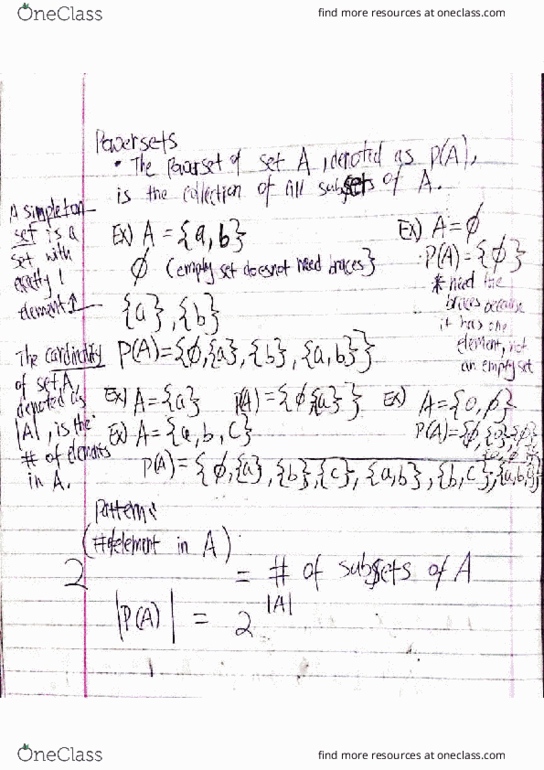 OneClass
find more resources at oneclass.com
Powersets
• The Powerset of set A, denoted as P(A),
is the collection of all subsets of A.
A simpleton
set is a
set with
exactly 1
element↑
Ex) A = {a,b}
∅ (empty set does not need braces}
{a}, {b}
P(A) = {∅,{a}, {b}, {a,b}}
Ex) A = ∅
P(A) = {∅}
* need the
braces because
it has one
element, not
an empty set
The cardinality
of set A,
denoted as
|A|, is the
# of elements
in A.
Ex) A = {a} P(A) = {∅{a}}
Ex) A = {0,∅}
P(A) = {∅, {0}, {∅},
Ex) A = {a, b, c}
P(A) = {∅,{a}, {b}, {c}, {a,b}, {b,c},
Pattern:
2 (# of element in A) = # of subsets of A
|P(A)| = 2 |A|
OneClass
find more resources at oneclass.com